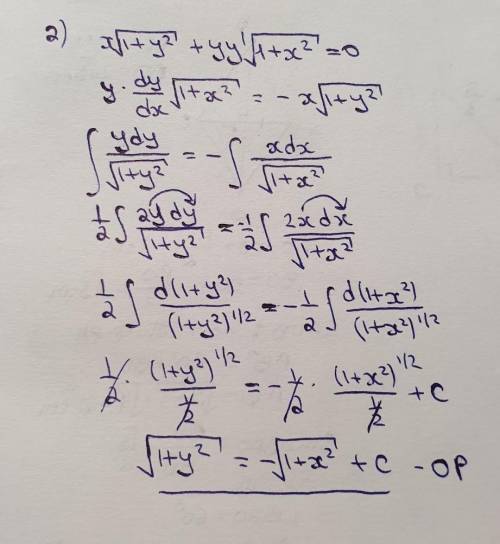 2) x√(1+y²) + yy'√(1+x²) = 0
y · dy/dx √(1+x²) = -x√(1+y²)
∫ ydy/√(1+y²) = -∫ xdx/√(1+x²)
1/2 ∫ 2ydy/√(1+y²) = -1/2 ∫ 2xdx/√(1+x²)
1/2 ∫ d(1+y²)/(1+y²)^1/2 = -1/2 ∫ d(1+x²)/(1+x²)^1/2
1/2 · (1+y²)^1/2/(1/2) = -1/2 · (1+x²)^1/2/(1/2) + C
√(1+y²) = -√(1+x²) + C - ОР